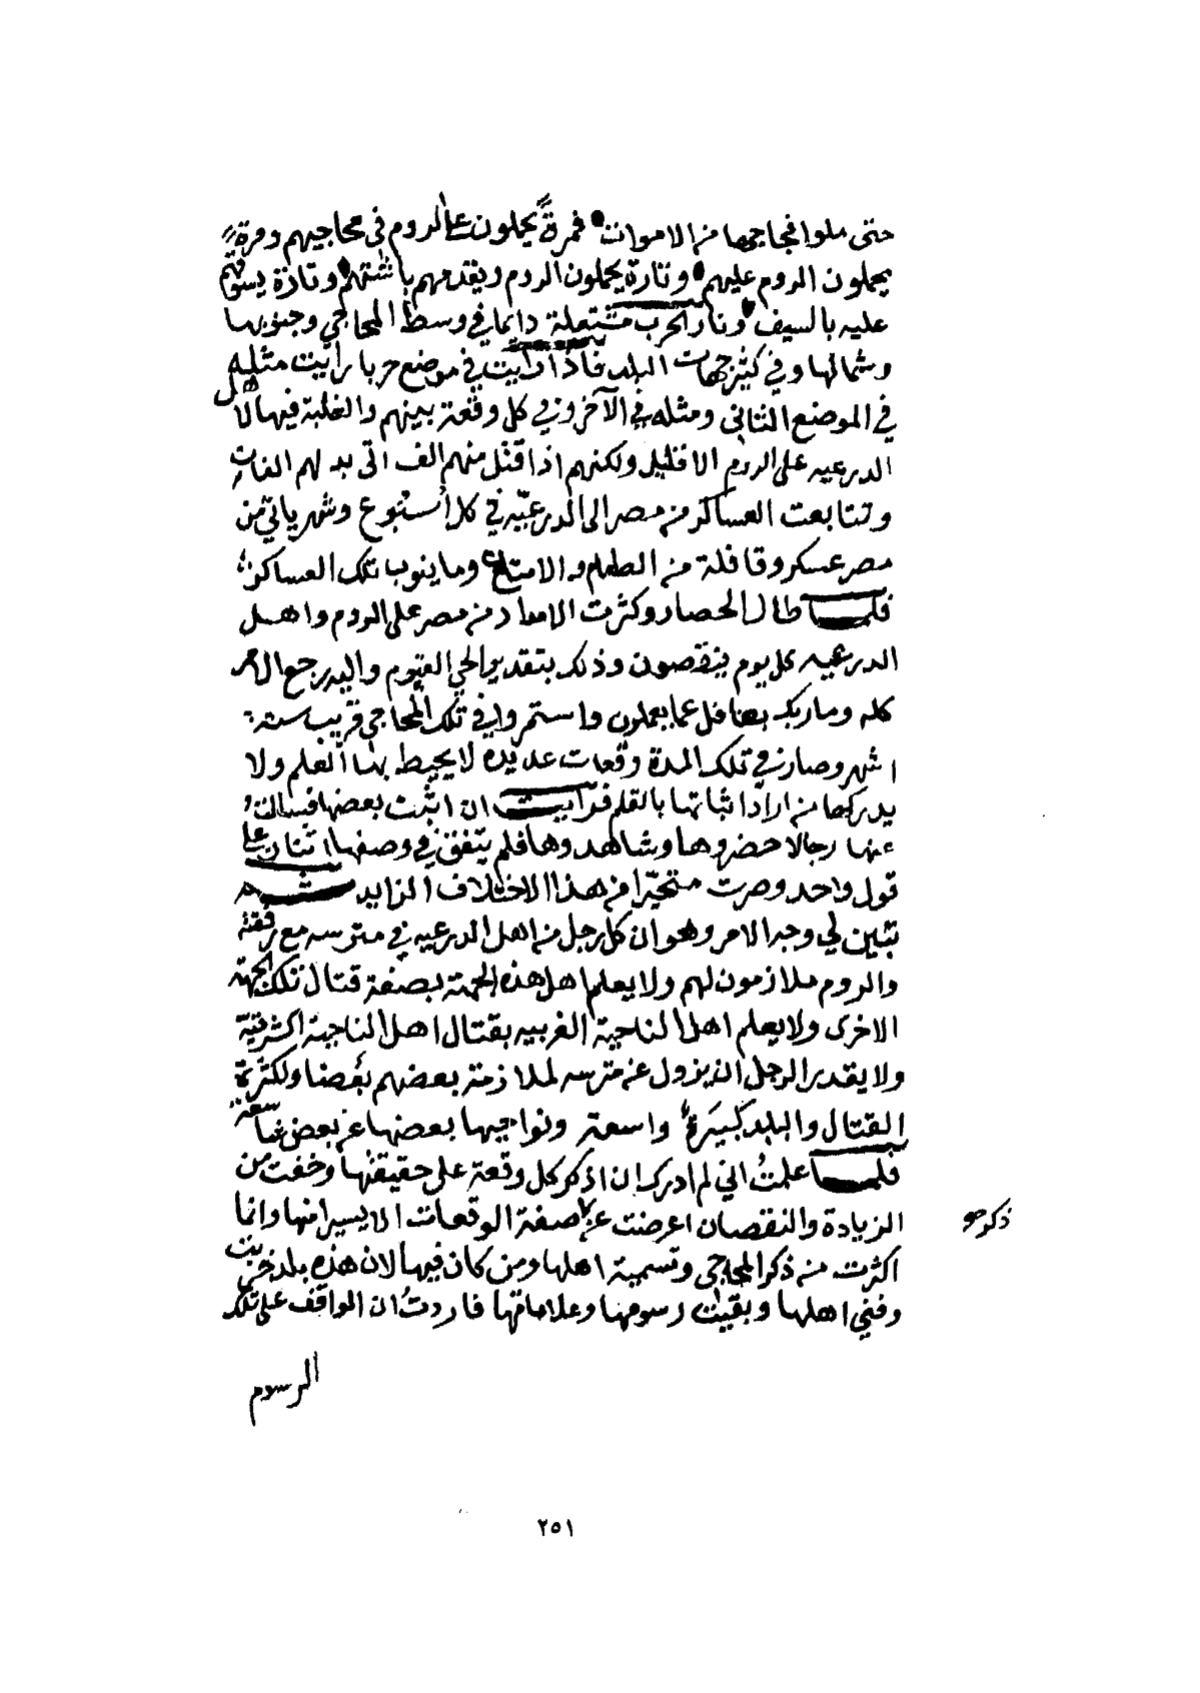 حتى ملوا فجاجها من الاموات فمرة يحملون على الروم في محاجيهم ومرة
يحملون الروم عليهم وتارة يحملون الروم ويقدمهم باشتهم وتارة يسوقهم
عليه بالسيف ونار الحرب مشتعلة دائما في وسط المحاجي وجنوبها
وشمالها وفي كثير جهات البلد فاذا رايت في موضع حربا رايت مثله
في الموضع الثاني ومثله في الآخر وفي كل وقعة بينهم والغلبة فيها لاهل
الدرعيه على الروم الا قليل ولكنهم اذا قتل منهم الف اتى بدلهم الفان
وتتابعت العساكر من مصر الى الدرعيّه في كل أسبُوع وشهر ياتي من
مصر عسكر وقافلة من الطعام والامتاع وما ينوب تلك العساكر
فلما طال الحصار وكثرت الامداد من مصر على الروم واهل
الدرعيه كل يوم ينقصون وذلك بتقدير الحي القيوم واليه يرجع الامر
كله وما ربك بغافل عما يعملون واستمروا في تلك المحاجي قريب ستة
اشهر وصار في تلك المدة وقعات عديده لا يحيط بها العلم ولا
يدركها من اراد اثباتها بالقلم فرايت ان اثبت بعضها فسالت
عنها رجالا حضروها وشاهدوها فلم يتفق في وصفها اثنان على
قول واحد وصرت متحيّرا من هذا الاختلاف الزايد ثم
تبين لي وجه الامر وهو ان كل رجل من اهل الدرعيه في مترسه مع رفقته
والروم ملازمون لهم ولا يعلم اهل هذه الجهة بصفة قتال تلك الجهة
الاخرى ولا يعلم اهل الناحية الغربيه بقتال اهل الناحية الشرقيّة
ولا يقدر الرجل ان يزول عن مترسه لملازمة بعضهم بعضا ولكثرة
القتال والبلد كبيَرةٌ واسعة ونواحيها بعضها عن بعض شاسعة
فلما علمتُ اني لم ادرك ان اذكر كل وقعة على حقيقتها وخفت من
الزيادة والنقصان اعرضت عن صفة الوقعات الا يسيرا منها وانما
اكثرت من ذكر المحاجي وتسمية اهلها ومن كان فيها لان هذه بلد خربت
وفني اهلها وبقيت رسومها وعلاماتها فاردتُ ان الواقف على تلك
الرسوم
٢٥١